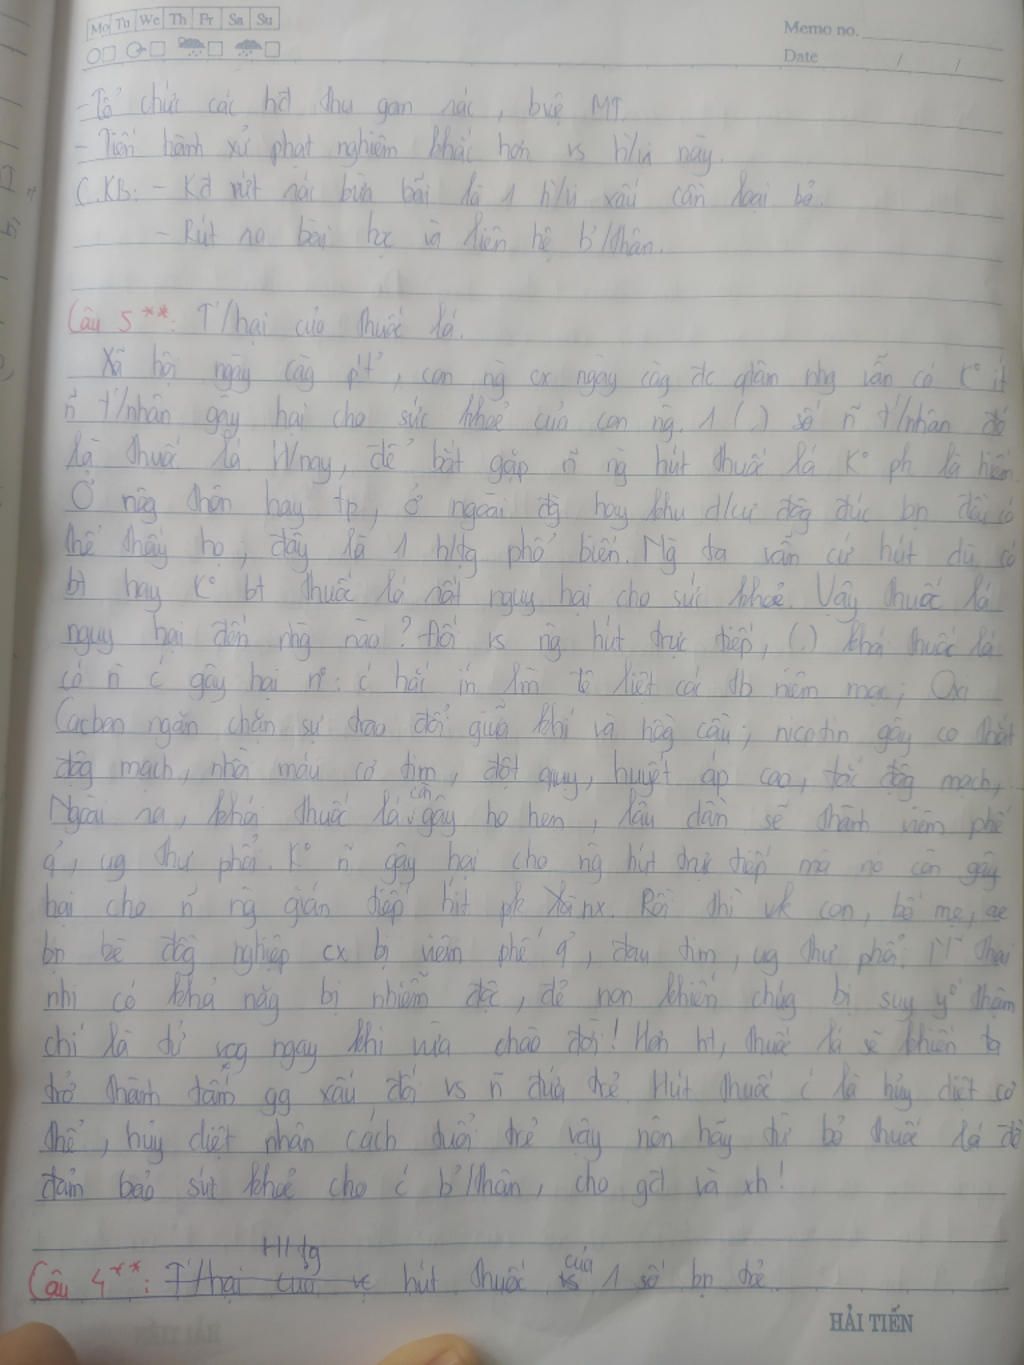 Mo Tu We Th Fr Sa Su
Memo no.
Date / /
- Tổ chức các hđ thu gom rác, bvệ MT.
- Tiến hành xử phạt nghiêm khắc hơn vs h/vi này.
C. KB: - Kđ vứt rác bừa bãi là 1 h/vi xấu cần loại bỏ.
- Rút ra bài học và liên hệ b/thân.
Câu 5**: T/hại của thuốc lá.
Xã hội ngày càg p/t, con ng cx ngày càg đc qtâm nhg vẫn có K° ít
n~ t/nhân gây hại cho sức khoẻ của con ng. 1 (.) số n~ t/nhân đó
là thuốc lá. H/nay, để bắt gặp n~ ng hút thuốc lá K° ph là hiếm.
Ở nôg thôn hay tp, ở ngoài đg hay khu d/cư đôg đúc bn đều có
thể thấy họ, đây là 1 h/tg phổ biến. Ng ta vẫn cứ hút dù có
bt hay K° bt thuốc lá rất nguy hại cho sức khoẻ. Vậy thuốc lá
nguy hại đến nhg nào? Đối vs ng hút trực tiếp, (.) khói thuốc lá
có n~ c gây hại n°: c hắc ín làm tê liệt các tb niêm mạc; Oxi
Cacbon ngăn chặn sự trao đổi giữa khí và hồg cầu; nicotin gây co thắt
độg mạch, nhồi máu cơ tim, đột quỵ, huyết áp cao, tắc độg mạch,
Ngoài ra, khói thuốc lá còn gây ho hen, lâu dần sẽ thành viêm phế
q', ug thư phổi. K° n~ gây hại cho ng hút trự tiếp mà nó còn gây
hại cho n~ ng gián tiếp hít pk Xã nx. Rồi thì vk con, bố mẹ, ae
bn bè đồg nghiệp cx bị viêm phế q', đau tim, ug thư phổi. thai
nhi có khả năg bị nhiễm độc, đẻ non khiến chúg bị suy y° thậm
chí là tử vog ngay khi vừa chào đời! Hơn ht, thuốc lá sẽ khiến ta
trở thành tấm gg xấu đối vs n~ đứa trẻ. Hút thuốc c là hủy diệt cơ
thể, hủy diệt nhân cách tuổi trẻ vậy nên hãy từ bỏ thuốc lá để
đảm bảo sứt khoẻ cho c b/thân, cho gđ và xh!
Câu 4**: T/hại của H/tg hút thuốc của 1 số bn trẻ
HẢI TIẾN